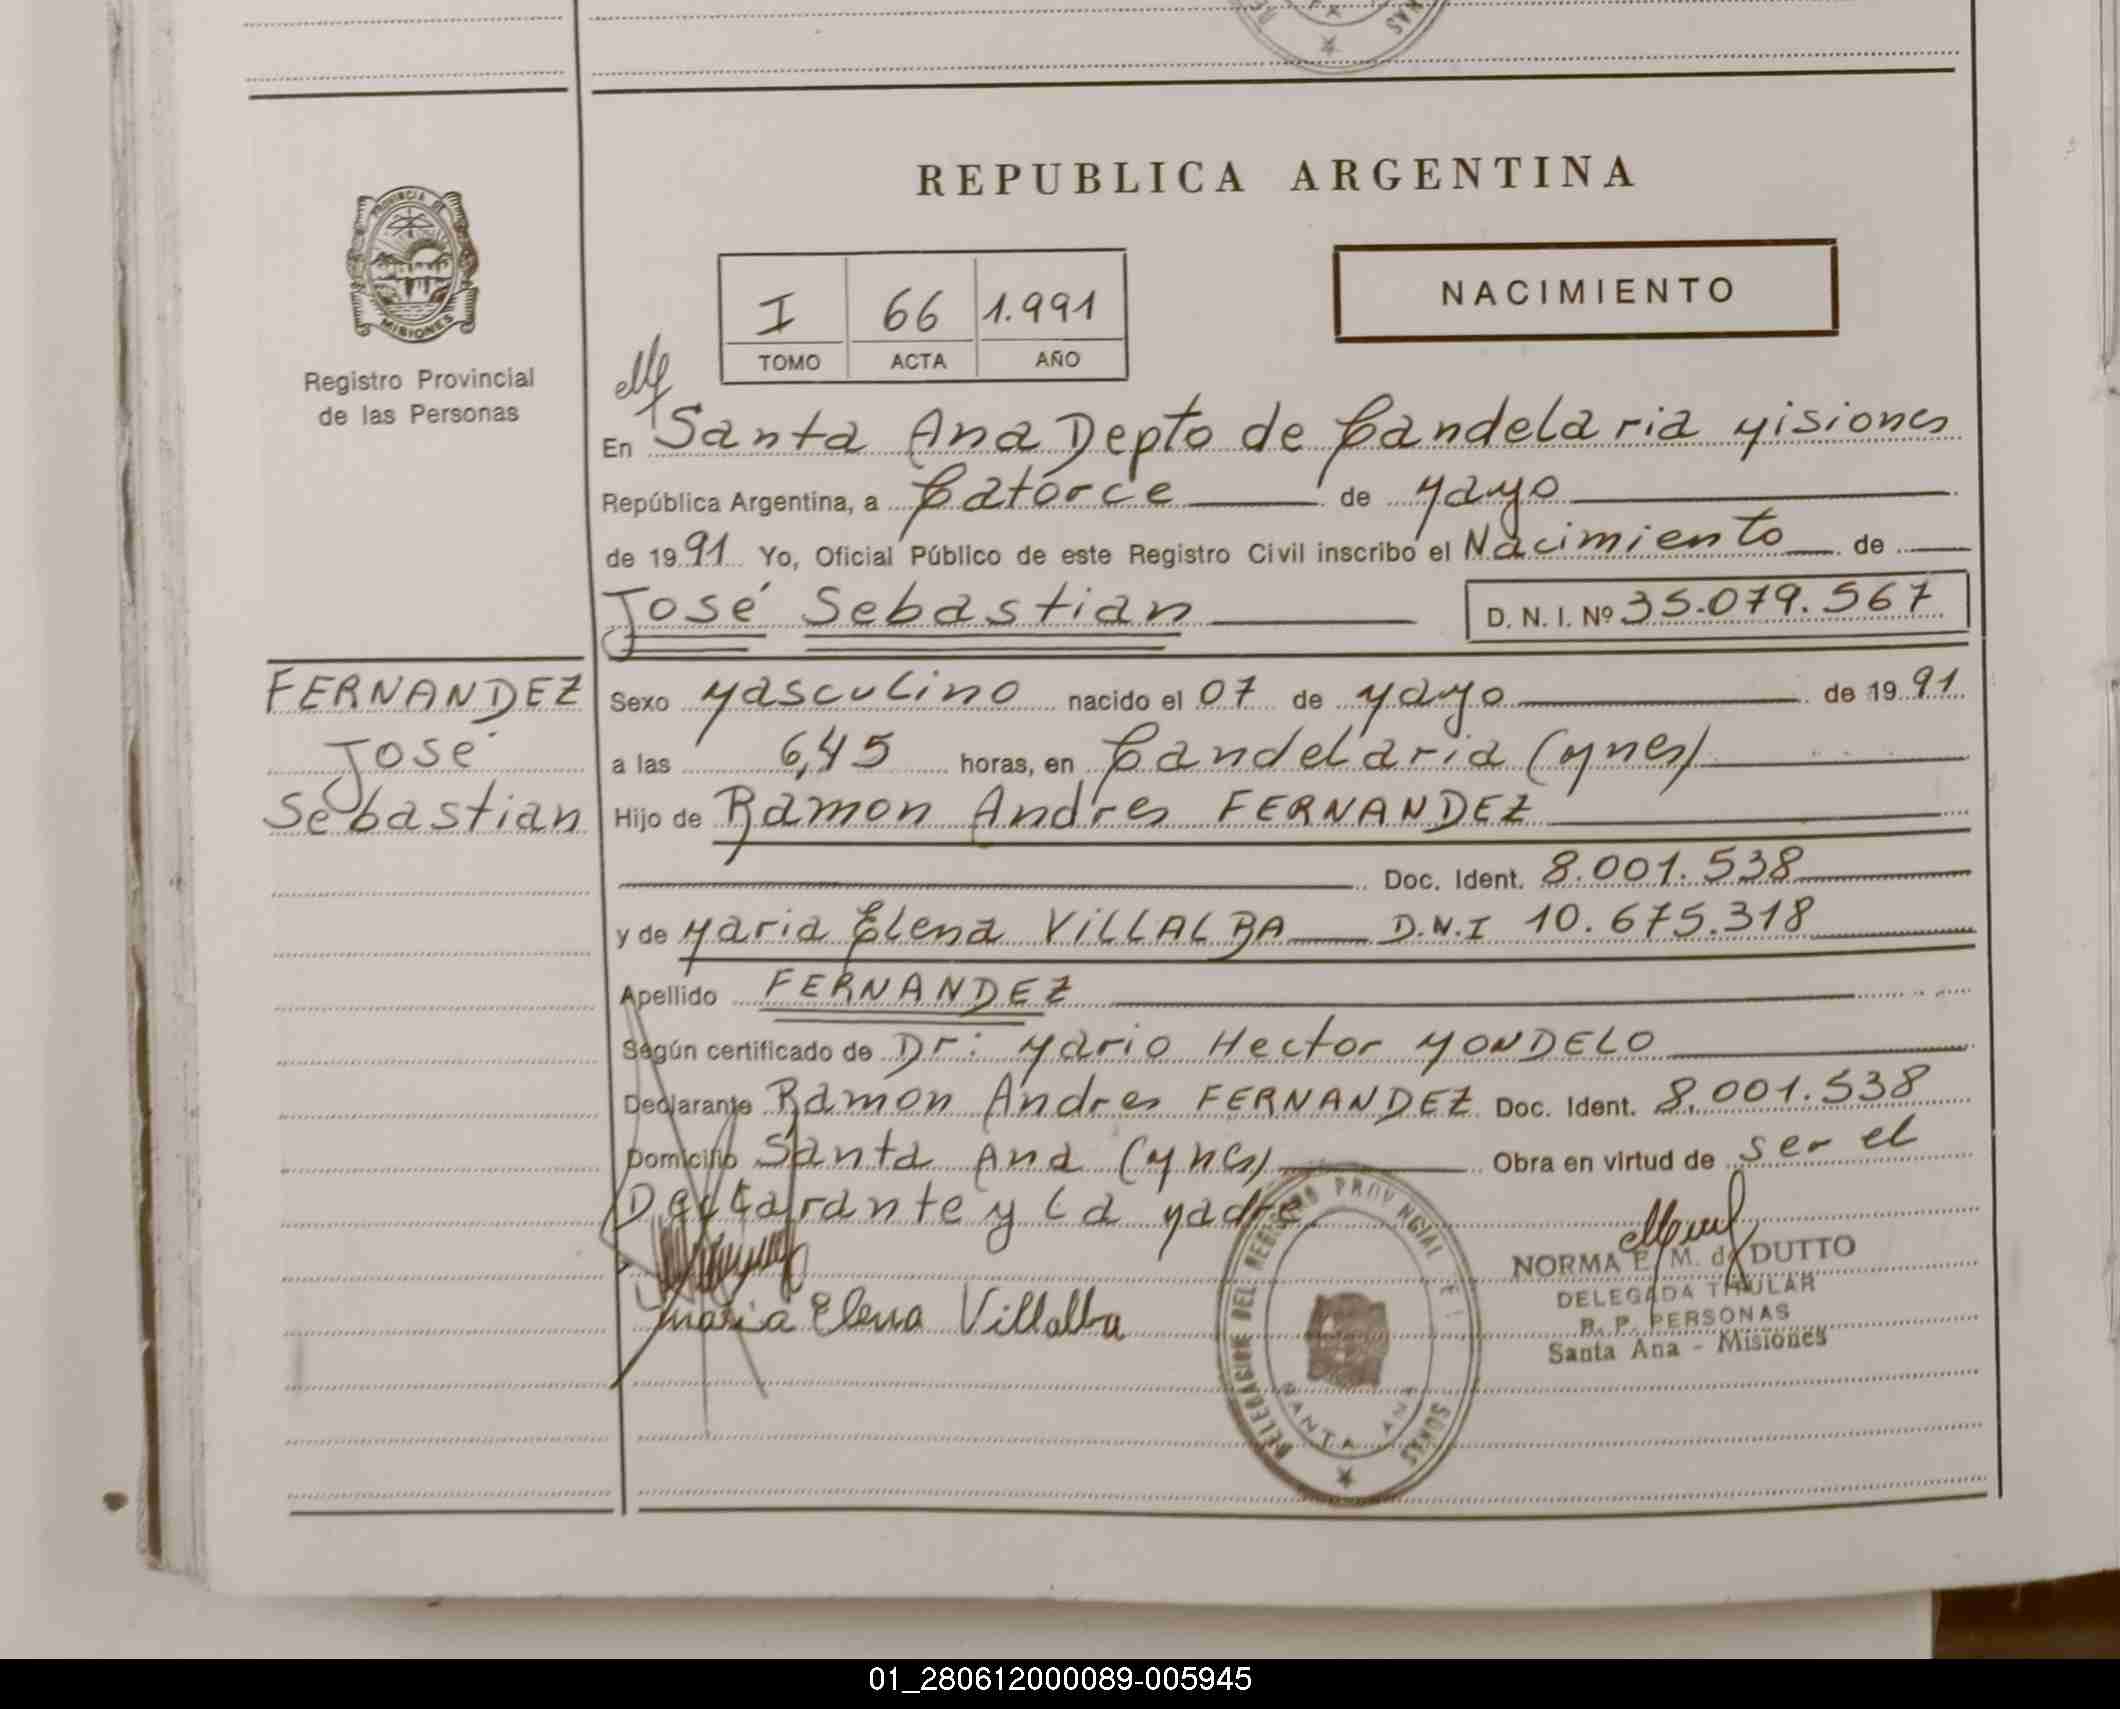 REPUBLICA ARGENTINA
PROVINCIA DE
MISIONES
Registro Provincial
de las Personas
I 66 1.991
TOMO ACTA AÑO
NACIMIENTO
En Santa Ana Depto de Candelaria Misiones
República Argentina, a Catorce de Mayo
de 1991 Yo, Oficial Público de este Registro Civil inscribo el Nacimiento de
José Sebastian D. N. I. Nº 35.079.567
FERNANDEZ
José
Sebastian
Sexo Masculino nacido el 07 de Mayo de 1991
a las 6,45 horas, en Candelaria (Mnes)
Hijo de Ramon Andres FERNANDEZ
Doc. Ident. 8.001.538
y de Maria Elena VILLALBA D.N.I 10.675.318
Apellido FERNANDEZ
Según certificado de Dr: Mario Hector MONDELO
Declarante Ramon Andres FERNANDEZ Doc. Ident. 8.001.538
Domicilio Santa Ana (Mnes) Obra en virtud de ser el
Declarante y La Madre
Maria Elena Villalba
DELEGACION DEL REGISTRO PROVINCIAL
SANTA ANA
NORMA E. M. de DUTTO
DELEGADA TITULAR
R. P. PERSONAS
Santa Ana - Misiones
01_280612000089-005945